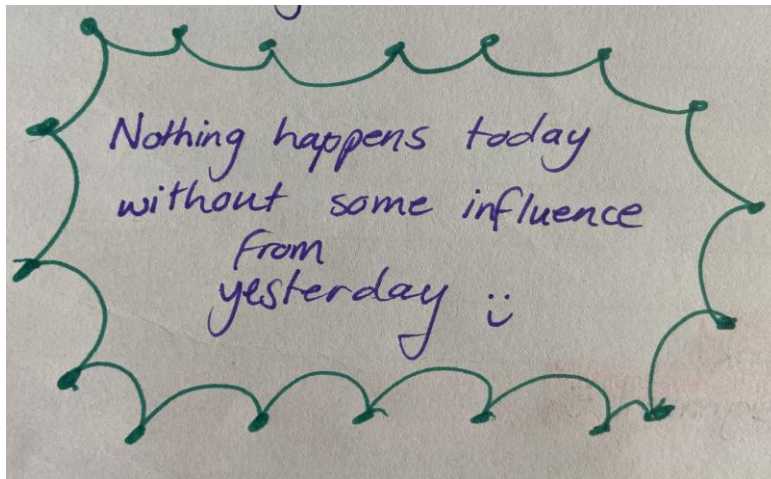 Nothing happens today
without some influence
from
yesterday :)